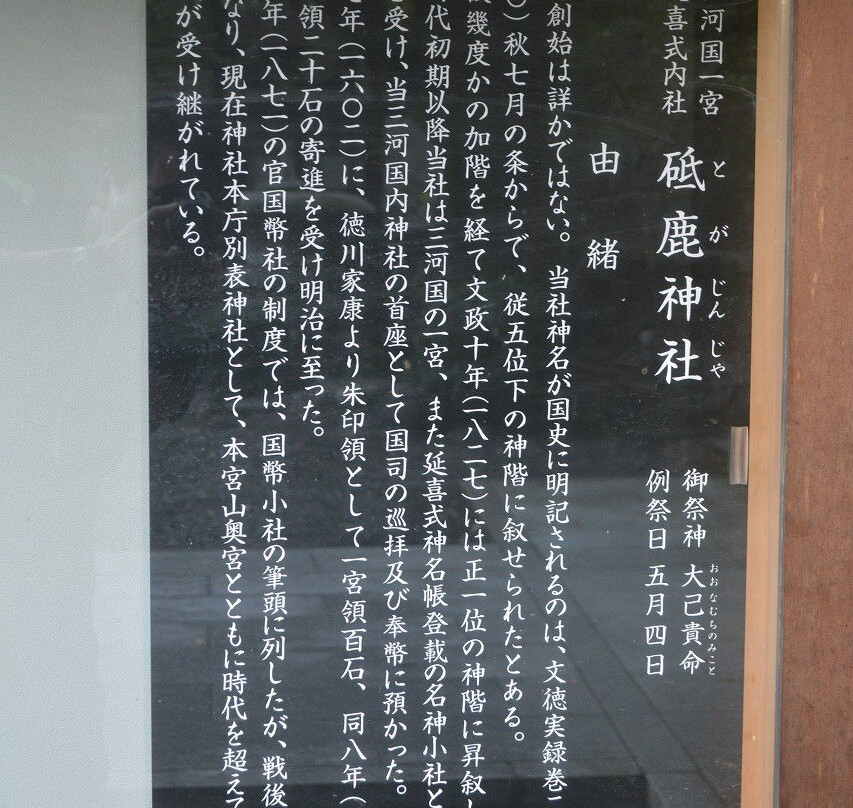 河国一宮
喜式内社
とがじんじゃ
砥鹿神社
おおなむちのみこと
御祭神 大己貴命
例祭日 五月四日
由緒
創始は詳かではない。 当社神名が国史に明記されるのは、文徳実録巻二
〇)秋七月の条からで、従五位下の神階に叙せられたとある。
幾度かの加階を経て文政十年(一八二七)には正一位の神階に昇叙し
代初期以降当社は三河国の一宮、また延喜式神名帳登載の名神小社と
を受け、当三河国内神社の首座として国司の巡拝及び奉幣に預かった。
年(一六〇二)に、徳川家康より朱印領として一宮領百石、同八年(
領二十石の寄進を受け明治に至った。
年(一八七一)の官国幣社の制度では、国幣小社の筆頭に列したが、戦後
なり、現在神社本庁別表神社として、本宮山奥宮とともに時代を超えて
が受け継がれている。